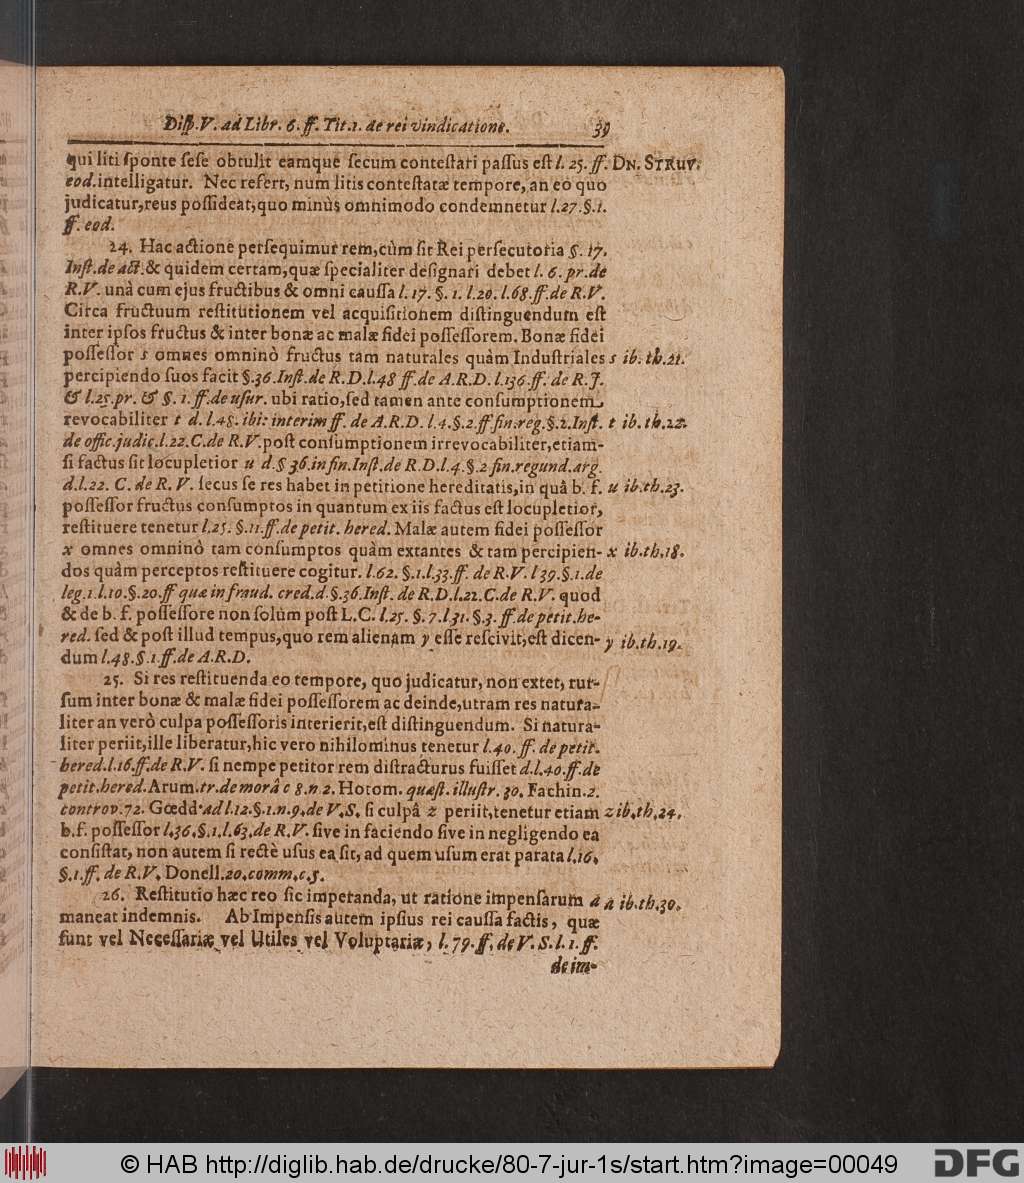 Disp. V. ad Libr. 6. ff. Tit. 1. de rei vindicatione. 39
qui liti sponte sese obtulit eamque secum contestari passus est l. 25. ff. DN. STRUV.
eod. intelligatur. Nec refert, num litis contestatæ tempore, an eo quo
judicatur, reus possideat, quo minùs omnimodo condemnetur l. 27. §. 1.
ff. eod.
24. Hac actione persequimur rem, cùm sit Rei persecutoria §. 17.
Inst. de act. & quidem certam, quæ specialiter designari debet l. 6. pr. de
R. V. unà cum ejus fructibus & omni caussa l. 17. §. 1. l. 20. l. 68. ff. de R. V.
Circa fructuum restitutionem vel acquisitionem distinguendum est
inter ipsos fructus & inter bonæ ac malæ fidei possessorem. Bonæ fidei
possessor s omnes omninò fructus tam naturales quàm Industriales s ib. th. 21.
percipiendo suos facit §. 36. Inst. de R. D. l. 48 ff. de A. R. D. l. 136. ff. de R. J.
& l. 25. pr. & §. 1. ff. de usur. ubi ratio, sed tamen ante consumptionem
revocabiliter t d. l. 48. ibi: interim ff. de A. R. D. l. 4. §. 2. ff fin. reg. §. 2. Inst. t ib. th. 22.
de offic. judic. l. 22. C. de R. V. post consumptionem irrevocabiliter, etiam-
si factus sit locupletior u d. § 36. in fin. Inst. de R. D. l. 4. §. 2 fin. regund. arg.
d. l. 22. C. de R. V. secus se res habet in petitione hereditatis, in quâ b. f. u ib. th. 23.
possessor fructus consumptos in quantum ex iis factus est locupletior,
restituere tenetur l. 25. §. 11. ff. de petit. hered. Malæ autem fidei possessor
x omnes omninò tam consumptos quàm extantes & tam percipien- x ib. th. 18.
dos quàm perceptos restituere cogitur. l. 62. §. 1. l. 33. ff. de R. V. l 39. §. 1. de
leg. 1. l. 10. §. 20. ff quæ in fraud. cred. d. §. 36. Inst. de R. D. l. 22. C. de R. V. quod
& de b. f. possessore non solùm post L. C. l. 25. §. 7. l. 31. §. 3. ff. de petit. he-
red. sed & post illud tempus, quo rem alienam y esse rescivit, est dicen- y ib. th. 19.
dum l. 48. §. 1. ff. de A. R. D.
25. Si res restituenda eo tempore, quo judicatur, non extet, rur-
sum inter bonæ & malæ fidei possessorem ac deinde, utram res natura-
liter an verò culpa possessoris interierit, est distinguendum. Si natura-
liter periit, ille liberatur, hic vero nihilominus tenetur l. 40. ff. de petit.
hered. l. 16. ff. de R. V. si nempe petitor rem distracturus fuisset d. l. 40. ff. de
petit. hered. Arum. tr. de morâ c 8. n 2. Hotom. quæst. illustr. 30. Fachin. 2.
controv. 72. Gœdd. ad l. 12. §. 1. n. 9. de V. S. si culpâ z periit, tenetur etiam z ib. th. 24.
b. f. possessor l. 36. §. 1. l. 63. de R. V. sive in faciendo sive in negligendo ea
consistat, non autem si rectè usus ea sit, ad quem usum erat parata l. 16.
§. 1. ff. de R. V. Donell. 20. comm. c. 5.
26. Restitutio hæc reo sic imperanda, ut ratione impensarum a a ib. th. 30.
maneat indemnis. Ab Impensis autem ipsius rei caussa factis, quæ
sunt vel Necessariæ vel Utiles vel Voluptariæ, l. 79. ff. de V. S. l. 1. ff.
de im-
© HAB http://diglib.hab.de/drucke/80-7-jur-1s/start.htm?image=00049
DFG